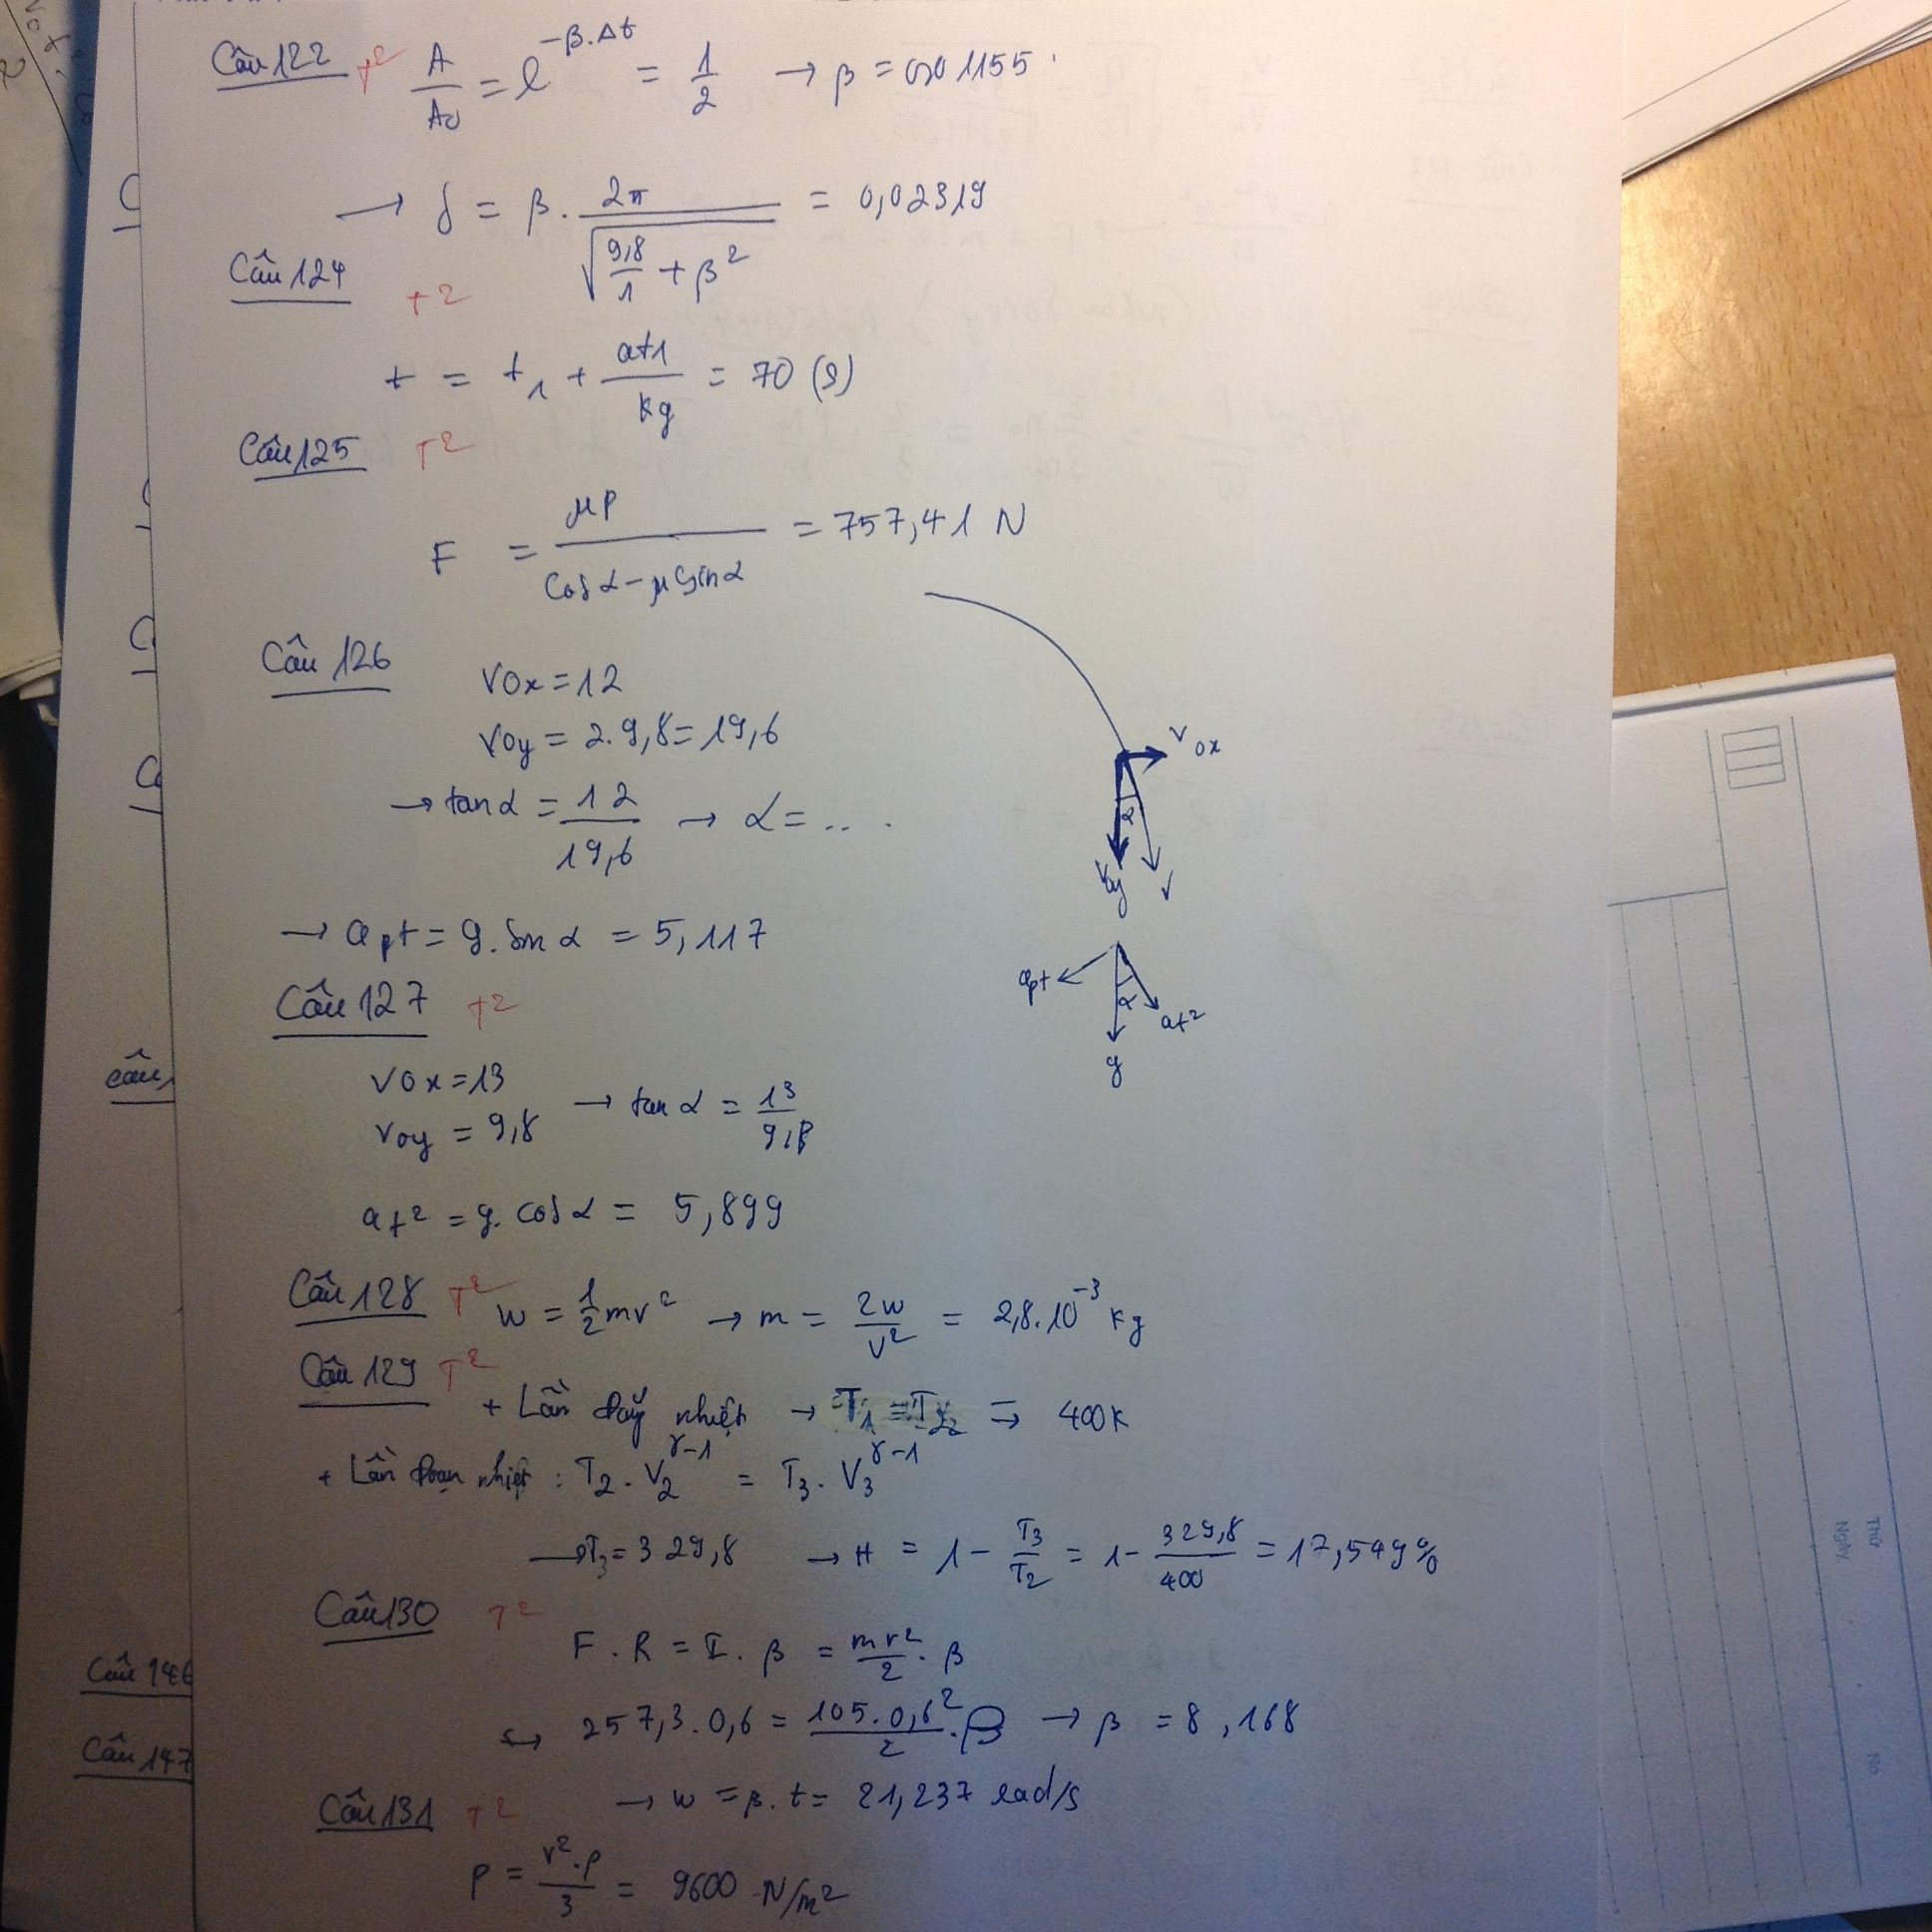 Câu 122 T2 A/A0 = e^{-β.Δt} = 1/2 → β = 0,01155
→ δ = β . 2π/√(9,8/1 + β²) = 0,02319
Câu 124 T2
t = t1 + at1/kg = 70 (s)
Câu 125 T2
F = μP/(cosα - μ sinα) = 757,41 N
Câu 126
V0x = 12
V0y = 2. 9,8 = 19,6
→ tanα = 12/19,6 → α = ...
→ apt = g. sin α = 5,117
V0x
α
V0y
V
apt
α
at²
g
Câu 127 T2
V0x = 13
V0y = 9,8 → tan α = 13/9,8
at² = g. cos α = 5,899
Câu 128 T2 W = 1/2 mv² → m = 2W/v² = 2,8.10⁻³ kg
Câu 129 T2
+ Lần đẳng nhiệt → T1 = T2 = 400K
+ Lần đoạn nhiệt : T2 . V2^{γ-1} = T3 . V3^{γ-1}
→ T3 = 329,8 → H = 1 - T3/T2 = 1 - 329,8/400 = 17,549%
Câu 130 T2
F . R = I . β = mr²/2 . β
257,3 . 0,6 = 105.0,6²/2 . β → β = 8,168
→ ω = β. t = 21,237 rad/s
Câu 131 T2
P = v².ρ/3 = 9600 N/m²
câu
Câu 146
Câu 147
Thứ
Ngày